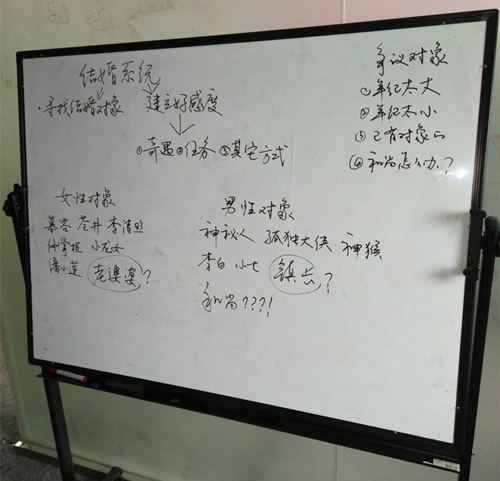 结婚系统
·寻找结婚对象 建立好感度
①奇遇②任务③其它方式
争议对象
①年纪太大
②年纪太小
③已有对象的
④和尚怎么办?
女性对象
慕容 苍井 李清照
小龙女
潘小莲 老婆婆?
男性对象
神秘人 孤独大侠 神猴
李白 小七 镇长?
和尚???!